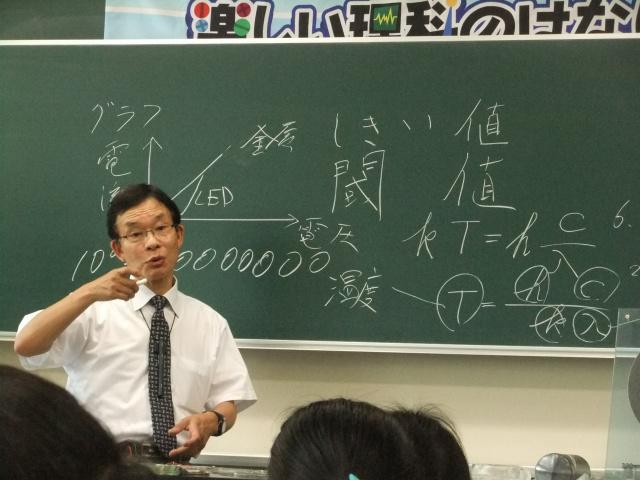 楽しい理科のはな
グラフ
電
金属
LED
電圧
しきい値
閾値
kT=h C/λ
6.
温度
T = h C / k λ